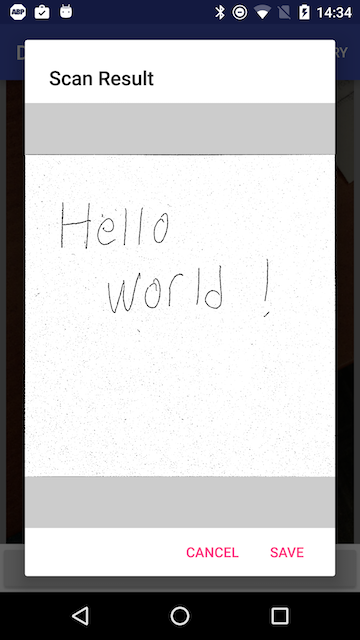 ABP
14:34
D
RY
Scan Result
Hello
world !
CANCEL
SAVE